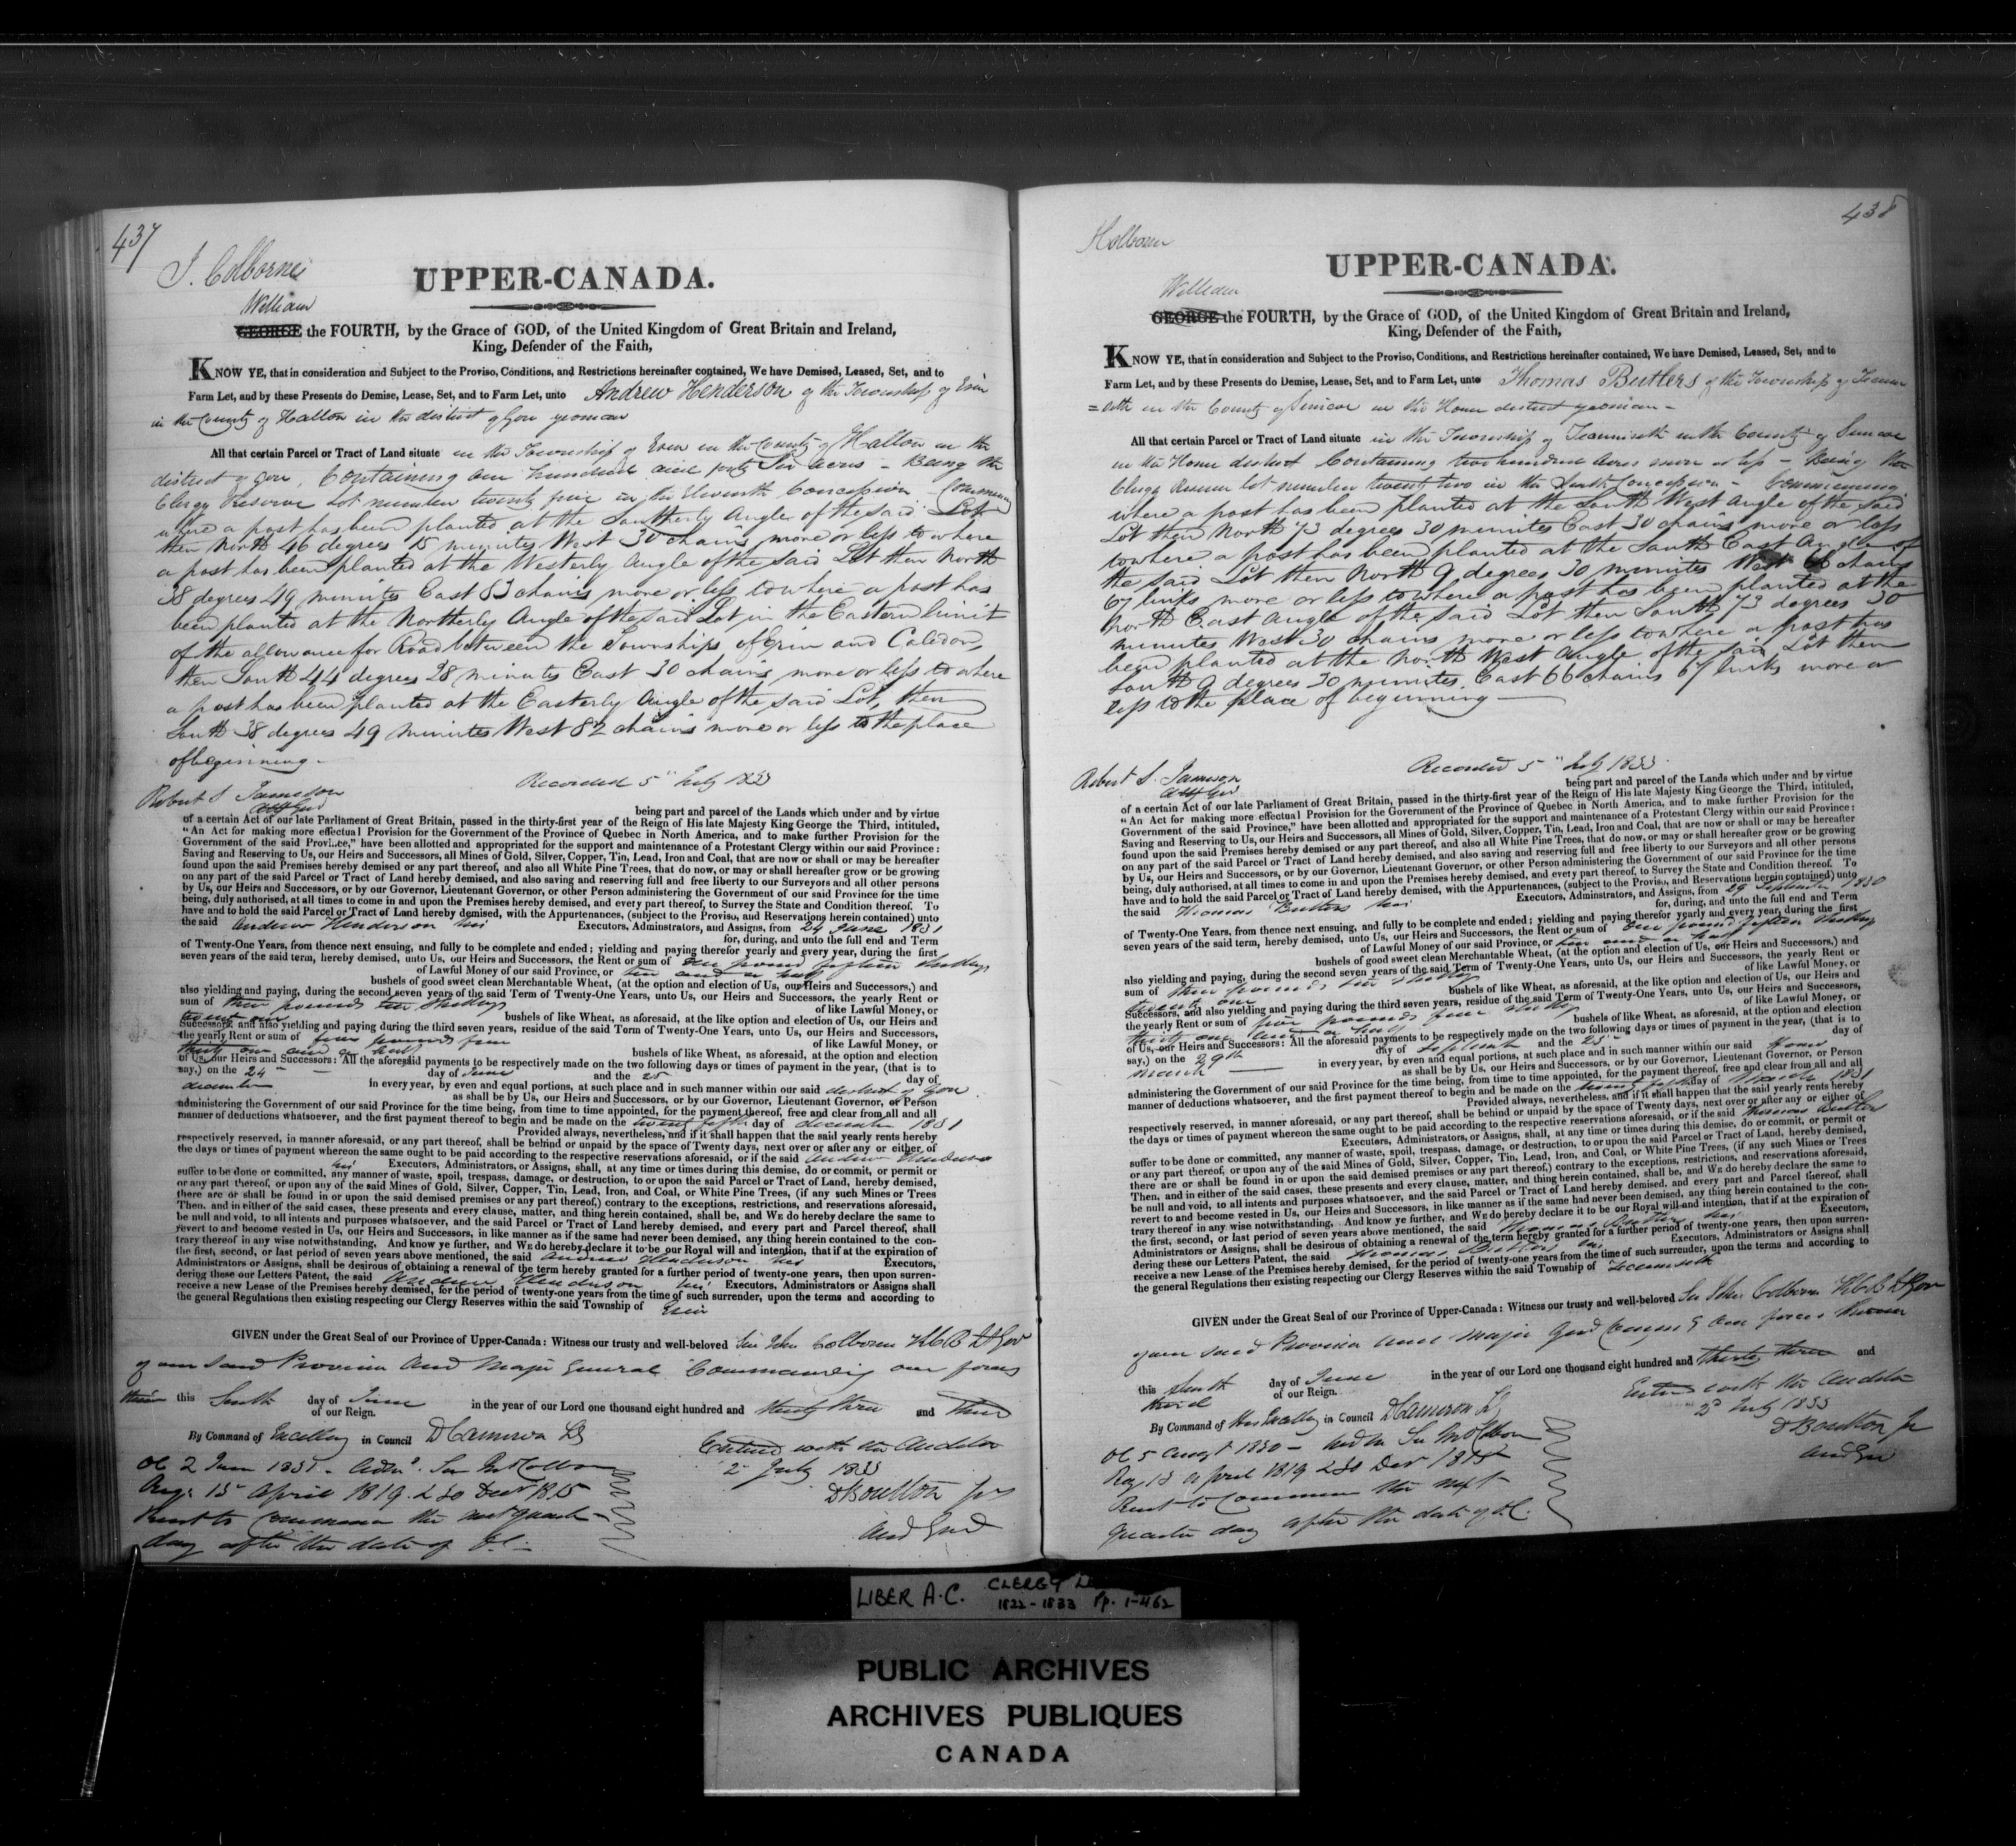 437
J. Colborne
UPPER-CANADA.
William
GEORGE the FOURTH, by the Grace of GOD, of the United Kingdom of Great Britain and Ireland,
King, Defender of the Faith,
KNOW YE, that in consideration and Subject to the Proviso, Conditions, and Restrictions hereinafter contained, We have Demised, Leased, Set, and to
Farm Let, and by these Presents do Demise, Lease, Set, and to Farm Let, unto Andrew Henderson of the Township of Erin
in the County of Halton in the district of Gore yeoman
All that certain Parcel or Tract of Land situate in the Township of Erin in the County of Halton in the
district of Gore, Containing one hundred and forty Six acres - Being the
Clergy Reserve Lot number twenty five in the Eleventh Concession -
where a post has been planted at the Southerly Angle of the said Lot
then North 46 degrees 15 minutes West 30 chains more or less to where
a post has been planted at the Westerly Angle of the said Lot then North
38 degrees 49 minutes East 83 chains more or less to where a post has
been planted at the Northerly Angle of the said Lot in the Eastern limit
of the allowance for Road between the Townships of Erin and Caledon,
then South 44 degrees 38 minutes East 30 chains more or less to where
a post has been planted at the Easterly Angle of the said Lot, then
South 38 degrees 49 minutes West 82 chains more or less to the place
of beginning -
Recorded 5" July 1833
Robert S Jameson
Att Gen
being part and parcel of the Lands which under and by virtue
of a certain Act of our late Parliament of Great Britain, passed in the thirty-first year of the Reign of His late Majesty King George the Third, intituled,
"An Act for making more effectual Provision for the Government of the Province of Quebec in North America, and to make further Provision for the
Government of the said Province," have been allotted and appropriated for the support and maintenance of a Protestant Clergy within our said Province:
Saving and Reserving to Us, our Heirs and Successors, all Mines of Gold, Silver, Copper, Tin, Lead, Iron and Coal, that are now or shall or may be hereafter
found upon the said Premises hereby demised or any part thereof, and also all White Pine Trees, that do now, or may or shall hereafter grow or be growing
on any part of the said Parcel or Tract of Land hereby demised, and also saving and reserving full and free liberty to our Surveyors and all other persons
by Us, our Heirs and Successors, or by our Governor, Lieutenant Governor, or other Person administering the Government of our said Province for the time
being, duly authorised, at all times to come in and upon the Premises hereby demised, and every part thereof, to Survey the State and Condition thereof. To
have and to hold the said Parcel or Tract of Land hereby demised, with the Appurtenances, (subject to the Proviso, and Reservations herein contained) unto
the said Andrew Henderson his Executors, Adminstrators, and Assigns, from 24 June 1831
for, during, and unto the full end and Term
of Twenty-One Years, from thence next ensuing, and fully to be complete and ended; yielding and paying therefor yearly and every year, during the first
seven years of the said term, hereby demised, unto Us, our Heirs and Successors, the Rent or sum of one pound fifteen shillings
of Lawful Money of our said Province, or ten and a half
bushels of good sweet clean Merchantable Wheat, (at the option and election of Us, our Heirs and Successors,) and
also yielding and paying, during the second seven years of the said Term of Twenty-One Years, unto Us, our Heirs and Successors, the yearly Rent or
sum of three pounds ten shillings of like Lawful Money, or
twenty one bushels of like Wheat, as aforesaid, at the like option and election of Us, our Heirs and
Successors; and also yielding and paying during the third seven years, residue of the said Term of Twenty-One Years, unto Us, our Heirs and Successors,
the yearly Rent or sum of five pounds five of like Lawful Money, or
thirty one and a half bushels of like Wheat, as aforesaid, at the option and election
of Us, our Heirs and Successors: All the aforesaid payments to be respectively made on the two following days or times of payment in the year, (that is to
say,) on the 24 day of June and the 25 day of
december in every year, by even and equal portions, at such place and in such manner within our said district of Gore
as shall be by Us, our Heirs and Successors, or by our Governor, Lieutenant Governor, or Person
administering the Government of our said Province for the time being, from time to time appointed, for the payment thereof, free and clear from all and all
manner of deductions whatsoever, and the first payment thereof to begin and be made on the twenty fifth day of december 1831
Provided always, nevertheless, and if it shall happen that the said yearly rents hereby
respectively reserved, in manner aforesaid, or any part thereof, shall be behind or unpaid by the space of Twenty days, next over or after any or either of
the days or times of payment whereon the same ought to be paid according to the respective reservations aforesaid, or if the said Andrew Henderson
his Executors, Administrators, or Assigns, shall, at any time or times during this demise, do or commit, or permit or
suffer to be done or committed, any manner of waste, spoil, trespass, damage, or destruction, to or upon the said Parcel or Tract of Land, hereby demised,
or any part thereof, or upon any of the said Mines of Gold, Silver, Copper, Tin, Lead, Iron, and Coal, or White Pine Trees, (if any such Mines or Trees
there are or shall be found in or upon the said demised premises or any part thereof,) contrary to the exceptions, restrictions, and reservations aforesaid,
Then, and in either of the said cases, these presents and every clause, matter, and thing herein contained, shall be, and WE do hereby declare the same to
be null and void, to all intents and purposes whatsoever, and the said Parcel or Tract of Land hereby demised, and every part and Parcel thereof, shall
revert to and become vested in Us, our Heirs and Successors, in like manner as if the same had never been demised, any thing herein contained to the con-
trary thereof in any wise notwithstanding. And know ye further, and WE do hereby declare it to be our Royal will and intention, that if at the expiration of
the first, second, or last period of seven years above mentioned, the said Andrew Henderson his Executors,
Administrators or Assigns, shall be desirous of obtaining a renewal of the term hereby granted for a further period of twenty-one years, then upon surren-
dering these our Letters Patent, the said Andrew Henderson his Executors, Administrators or Assigns shall
receive a new Lease of the Premises hereby demised, for the period of twenty-one years from the time of such surrender, upon the terms and according to
the general Regulations then existing respecting our Clergy Reserves within the said Township of Erin
GIVEN under the Great Seal of our Province of Upper-Canada: Witness our trusty and well-beloved Sir John Colborne KCB Lt Gov
of our said Province and Major General Commanding our forces
therein this Tenth day of June in the year of our Lord one thousand eight hundred and thirty three and third
of our Reign.
By Command of Excellency in Council D Cameron Sy
Entered with the Auditor
OC 2 June 1831 -
2 July 1833
Reg. 15 April 1819 & 30 Decr 1815
D Boulton Jr
Rent to Commence the next quarter
Aud Genl
day after the date of OC -
438
UPPER-CANADA.
William
GEORGE the FOURTH, by the Grace of GOD, of the United Kingdom of Great Britain and Ireland,
King, Defender of the Faith,
KNOW YE, that in consideration and Subject to the Proviso, Conditions, and Restrictions hereinafter contained, We have Demised, Leased, Set, and to
Farm Let, and by these Presents do Demise, Lease, Set, and to Farm Let, unto Thomas Butlers of the Township of Tecum
=seth in the County of Simcoe in the Home district yeoman -
All that certain Parcel or Tract of Land situate in the Township of Tecumseth in the County of Simcoe
in the Home district Containing two hundred acres more or less - being the
Clergy Reserve lot number twenty two in the Tenth Concession - Commencing
where a post has been planted at the South West Angle of the said
Lot then North 73 degrees 30 minutes East 30 chains more or less
to where a post has been planted at the South East Angle of
the said Lot then North 9 degrees 30 minutes West 66 chains
67 links more or less to where a post has been planted at the
North East Angle of the said Lot then South 73 degrees 30
minutes West 30 chains more or less to where a post has
been planted at the North West Angle of the said Lot then
South 9 degrees 30 minutes East 66 chains 67 links more or
less to the place of beginning
Recorded 5" July 1833
Robert S. Jameson
Att Gen
being part and parcel of the Lands which under and by virtue
of a certain Act of our late Parliament of Great Britain, passed in the thirty-first year of the Reign of His late Majesty King George the Third, intituled,
"An Act for making more effectual Provision for the Government of the Province of Quebec in North America, and to make further Provision for the
Government of the said Province," have been allotted and appropriated for the support and maintenance of a Protestant Clergy within our said Province:
Saving and Reserving to Us, our Heirs and Successors, all Mines of Gold, Silver, Copper, Tin, Lead, Iron and Coal, that are now or shall or may be hereafter
found upon the said Premises hereby demised or any part thereof, and also all White Pine Trees, that do now, or may or shall hereafter grow or be growing
on any part of the said Parcel or Tract of Land hereby demised, and also saving and reserving full and free liberty to our Surveyors and all other persons
by Us, our Heirs and Successors, or by our Governor, Lieutenant Governor, or other Person administering the Government of our said Province for the time
being, duly authorised, at all times to come in and upon the Premises hereby demised, and every part thereof, to Survey the State and Condition thereof. To
have and to hold the said Parcel or Tract of Land hereby demised, with the Appurtenances, (subject to the Proviso, and Reservations herein contained) unto
the said Thomas Butlers his Executors, Adminstrators, and Assigns, from 29 September 1830
for, during, and unto the full end and Term
of Twenty-One Years, from thence next ensuing, and fully to be complete and ended; yielding and paying therefor yearly and every year, during the first
seven years of the said term, hereby demised, unto Us, our Heirs and Successors, the Rent or sum of one pound fifteen shillings
of Lawful Money of our said Province, or ten and a half
bushels of good sweet clean Merchantable Wheat, (at the option and election of Us, our Heirs and Successors,) and
also yielding and paying, during the second seven years of the said Term of Twenty-One Years, unto Us, our Heirs and Successors, the yearly Rent or
sum of three pounds ten shillings of like Lawful Money, or
twenty one bushels of like Wheat, as aforesaid, at the like option and election of Us, our Heirs and
Successors, and also yielding and paying during the third seven years, residue of the said Term of Twenty-One Years, unto Us, our Heirs and Successors,
the yearly Rent or sum of five pounds five shillings of like Lawful Money, or
thirty one and a half bushels of like Wheat, as aforesaid, at the option and election
of Us, our Heirs and Successors: All the aforesaid payments to be respectively made on the two following days or times of payment in the year, (that is to
say,) on the 29th day of September and the 25 day of
March in every year, by even and equal portions, at such place and in such manner within our said Home
as shall be by Us, our Heirs and Successors, or by our Governor, Lieutenant Governor, or Person
administering the Government of our said Province for the time being, from time to time appointed, for the payment thereof, free and clear from all and all
manner of deductions whatsoever, and the first payment thereof to begin and be made on the twenty fifth day of March 1831
Provided always, nevertheless, and if it shall happen that the said yearly rents hereby
respectively reserved, in manner aforesaid, or any part thereof, shall be behind or unpaid by the space of Twenty days, next over or after any or either of
the days or times of payment whereon the same ought to be paid according to the respective reservations aforesaid, or if the said Thomas Butlers
Executors, Administrators, or Assigns, shall, at any time or times during this demise, do or commit, or permit or
suffer to be done or committed, any manner of waste, spoil, trespass, damage, or destruction, to or upon the said Parcel or Tract of Land, hereby demised,
or any part thereof, or upon any of the said Mines of Gold, Silver, Copper, Tin, Lead, Iron, and Coal, or White Pine Trees, (if any such Mines or Trees
there are or shall be found in or upon the said demised premises or any part thereof,) contrary to the exceptions, restrictions, and reservations aforesaid,
Then, and in either of the said cases, these presents and every clause, matter, and thing herein contained, shall be, and WE do hereby declare the same to
be null and void, to all intents and purposes whatsoever, and the said Parcel or Tract of Land hereby demised, and every part and Parcel thereof, shall
revert to and become vested in Us, our Heirs and Successors, in like manner as if the same had never been demised, any thing herein contained to the con-
trary thereof in any wise notwithstanding. And know ye further, and WE do hereby declare it to be our Royal will and intention, that if at the expiration of
the first, second, or last period of seven years above mentioned, the said Thomas Butlers his Executors,
Administrators or Assigns, shall be desirous of obtaining a renewal of the term hereby granted for a further period of twenty-one years, then upon surren-
dering these our Letters Patent, the said Thomas Butlers his Executors, Administrators or Assigns shall
receive a new Lease of the Premises hereby demised, for the period of twenty-one years from the time of such surrender, upon the terms and according to
the general Regulations then existing respecting our Clergy Reserves within the said Township of Tecumseth
GIVEN under the Great Seal of our Province of Upper-Canada: Witness our trusty and well-beloved Sir John Colborne KCB Lt Gov
of our said Province and Major Genl Commg our forces therein
this Tenth day of June in the year of our Lord one thousand eight hundred and thirty three and
third of our Reign.
Entered with the Auditor
By Command of His Excellency in Council D Cameron Sy
2d July 1833
OC 5 August 1830 -
D Boulton Jr
Reg 15 April 1819 & 30 Decr 1815
Aud Gen
Rent to Commence the next
quarter day after the date of OC.
LIBER A.C. CLERGY
1822-1833 Pp. 1-462
PUBLIC ARCHIVES
ARCHIVES PUBLIQUES
CANADA